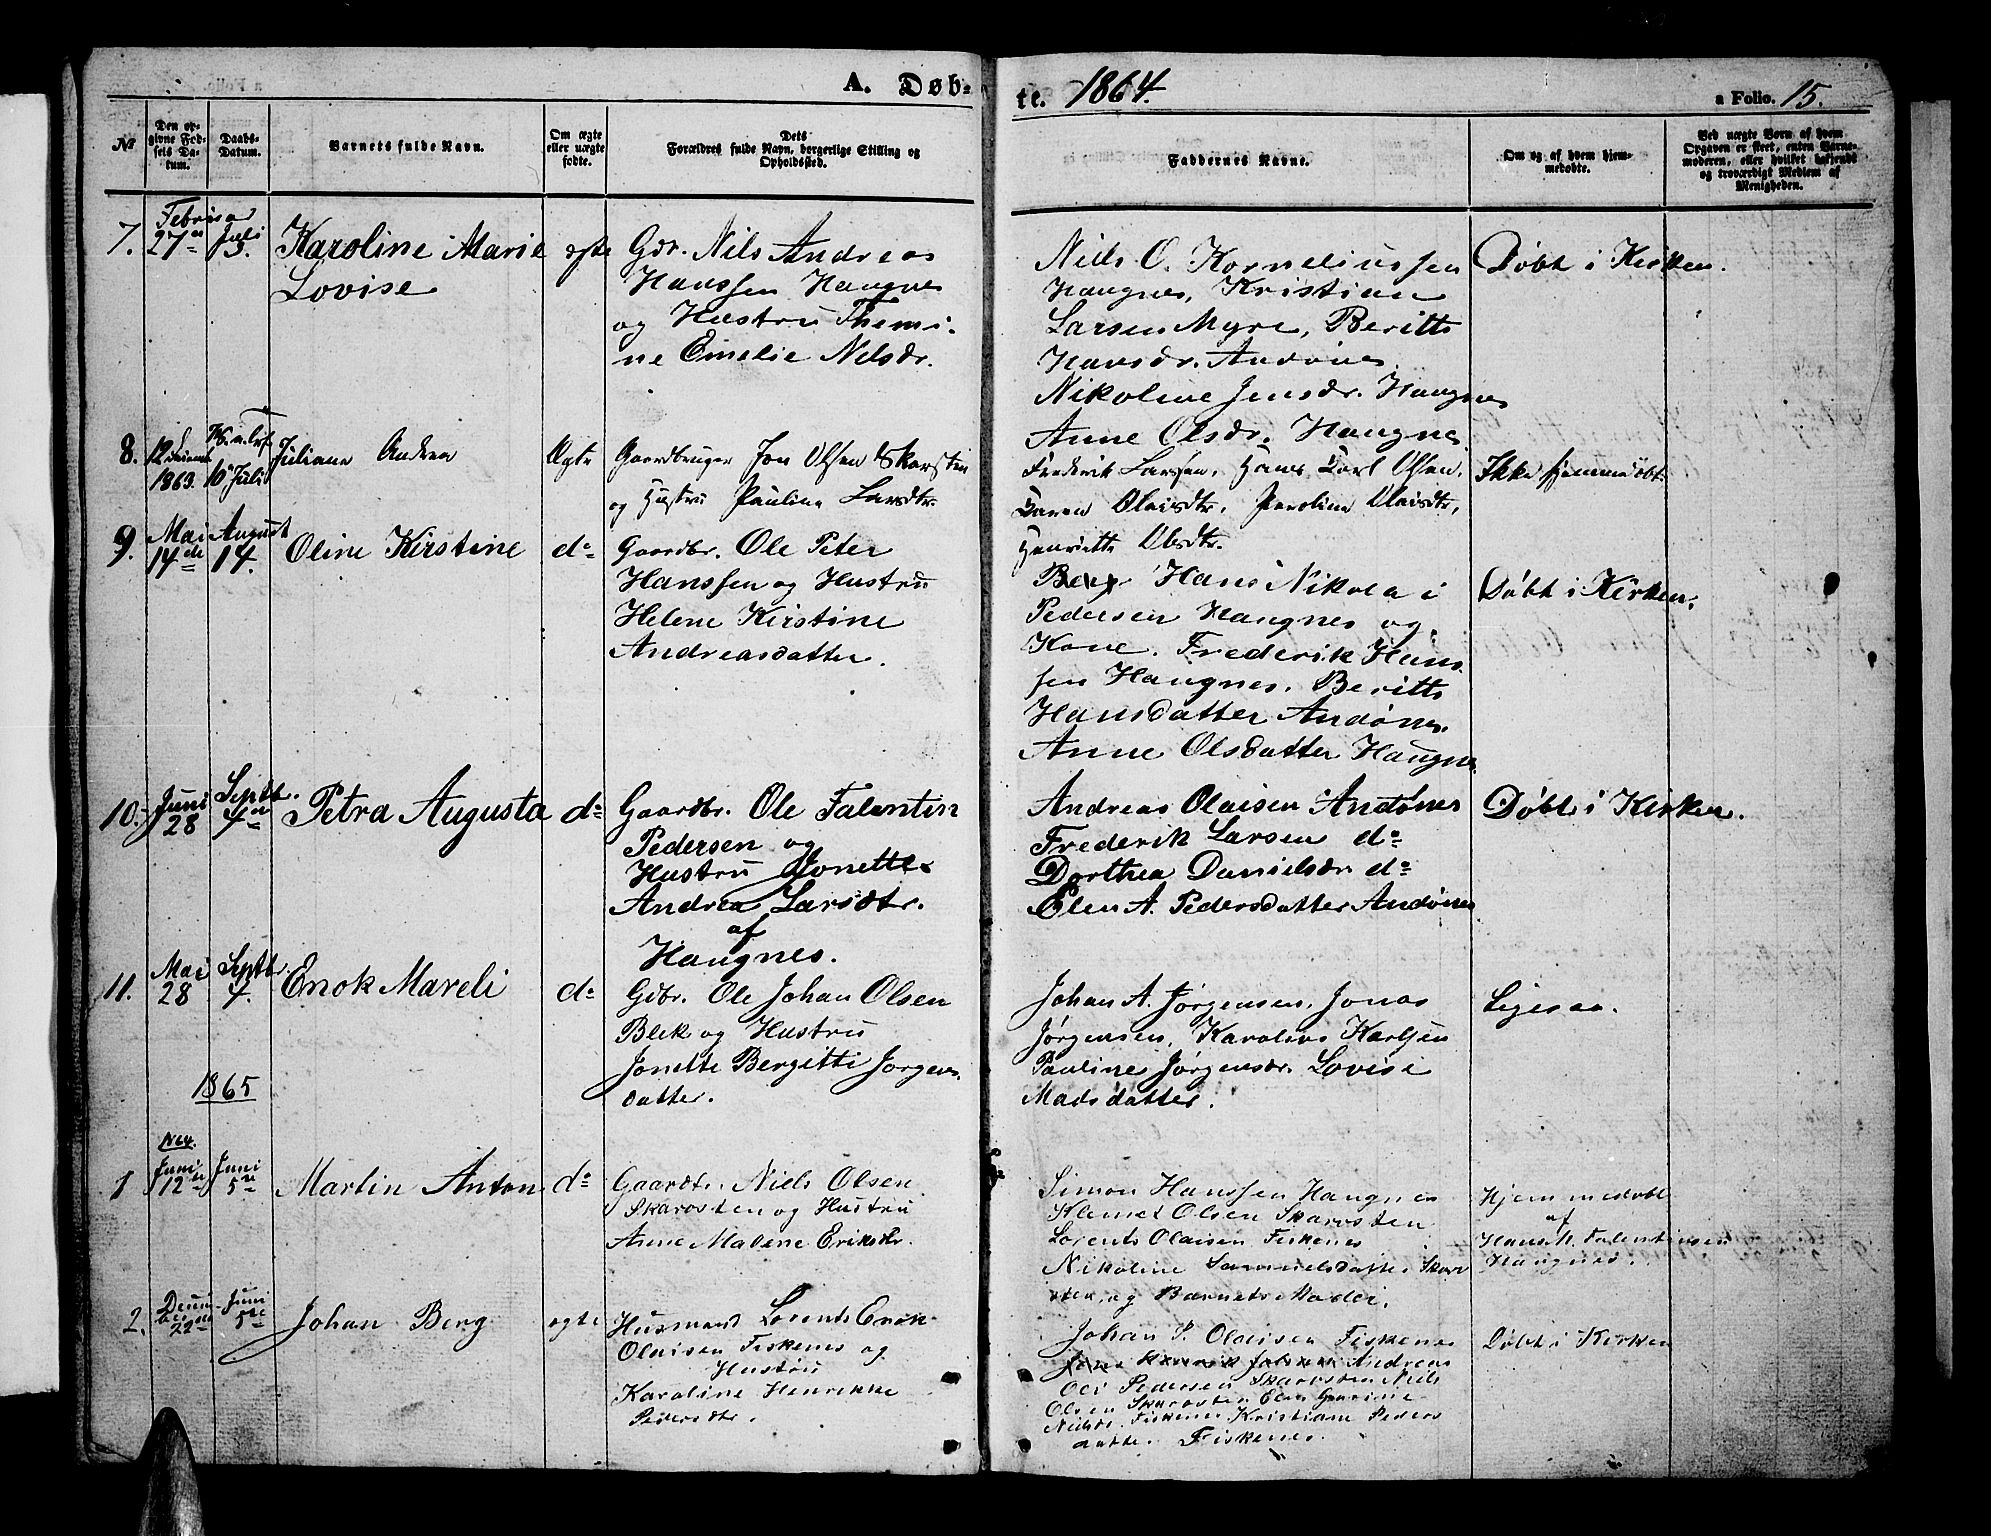 A. Døb-
te. 1864.
a Folio. 15.
No
Den opgivne Fødsels Datum.
Daabs-Datum.
Barnets fulde Navn.
Om ægte eller uægte fødte.
Dets Forældres fulde Navn, borgerlige Stilling og Opholdssted.
Faddernes Navne.
Om og af hvem hjemmedøbte.
Ved uægte Børn af hvem Opgaven er skeet, enten Barnemoderen, eller hvilket bekjendt og troværdigt Medlem af Menigheden.
7. 27 Juli 3. Karoline Marie
Lovise
ægte
Gdr. Nils Andreas
Hanssen Haugnes
og Hustru Themi-
ne Emelie Nelsdr.
Niels O. Korneliussen
Haugnes, Kristian
Larsen Myre, Beritte
Hansdr. Andønes
Nikoline Jensdr. Haugnes
Anne Olsdr. Haugnes
Døbt i Kirken.
8. 12
1863. 10 Juli
Juliane Andrea
Ægte
Gaardbruger Jon Olsen Skarsten
og Hustru Pauline Larsdtr.
Frederik Larsen, Hans Carl Olsen,
Karen Olaisdtr, Karoline Olaisdtr,
Henriette Olsdtr.
Ikke hjemmedøbt.
9. Mai 14de August 14. Oline Kirstine
do
Gaardbr. Ole Peter
Hanssen og Hustru
Helene Kirstine
Andreasdatter.
Hans Nikolai
Pedersen Haugnes og
Kone. Frederik Hans
sen Haugnes. Beritte
Hansdatter Andønes.
Anne Olsdatter Haugnes
Døbt i Kirken.
10. Juni 28 Septbr. 4 Petra Augusta
do
Gaardbr. Ole Falentin
Pedersen og
Hustru Jonette
Andrea Larsdtr.
af
Haugnes.
Andreas Olaisen Andønes
Frederik Larsen do
Dorthea Danielsdr do
Elen A. Pedersdatter Andønes
Døbt i Kirken.
11. Mai 28 Septbr. 4. Enok Mareli
do
Gdbr. Ole Johan Olsen
Blek og Hustru
Jonette Bergitti Jørgens
datter.
Johan A. Jørgensen, Jonas
Jørgensen, Karolius Karlsen
Pauline Jørgensdr. Lovise
Madsdatter.
Ligesaa.
1865
1864.
1 Juni 12 Juni 5 Martin Anton
do
Gaardbr. Niels Olsen
Skarosten og Hustru
Anne Malene Eriksdr.
Simon Hanssen Haugnes
Klemet Olsen Skarosten
Lorents Olaisen Fiskenes
Nikoline Samuelsdatter Skaro
sten, og Barnets Moder.
Hjemmedøbt
af
Falentinsen
Haugnes.
2. Decem
ber 22 Juni 5te Johan Berg
ægte
Husmand Lorents Enok
Olaisen Fiskenes og
Hustru
Karoline Henrikke
Pedersdtr.
Johan P. Olaisen Fiskenes
Andreas
Oli Pedersen Skarosten Niels
Olsen Skarosten Elen
Nielsdr. Fiskenes Kristiane Peders
datter Fiskenes.
Døbt i Kirken